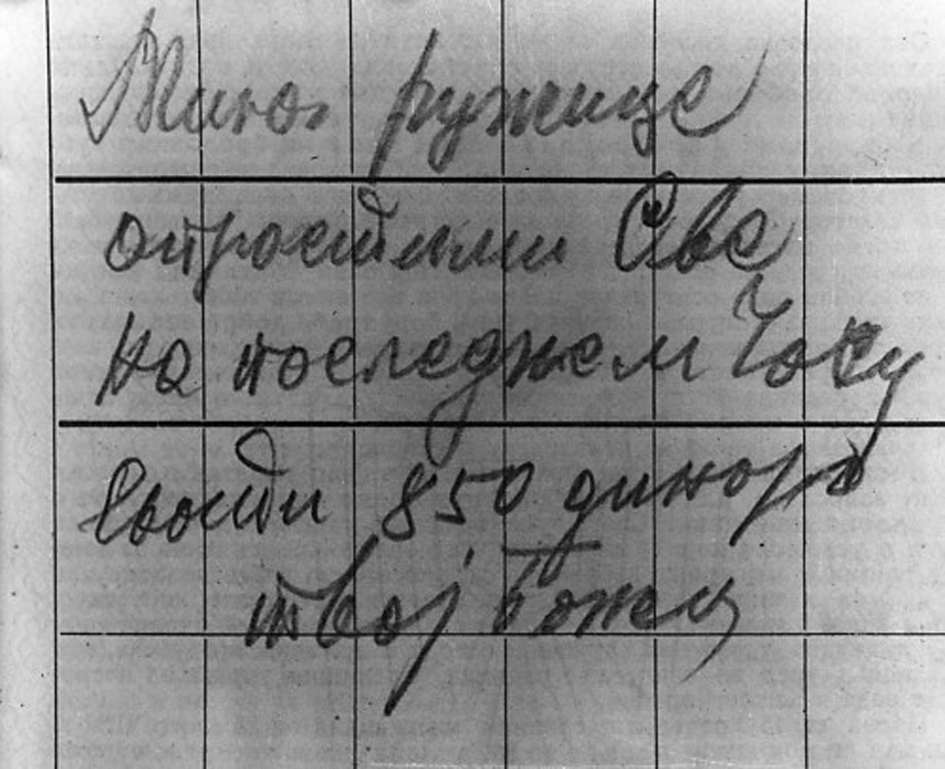 Мила ружице
опрости ми све
на последњем часу
евоти 850 динара
твој Божа